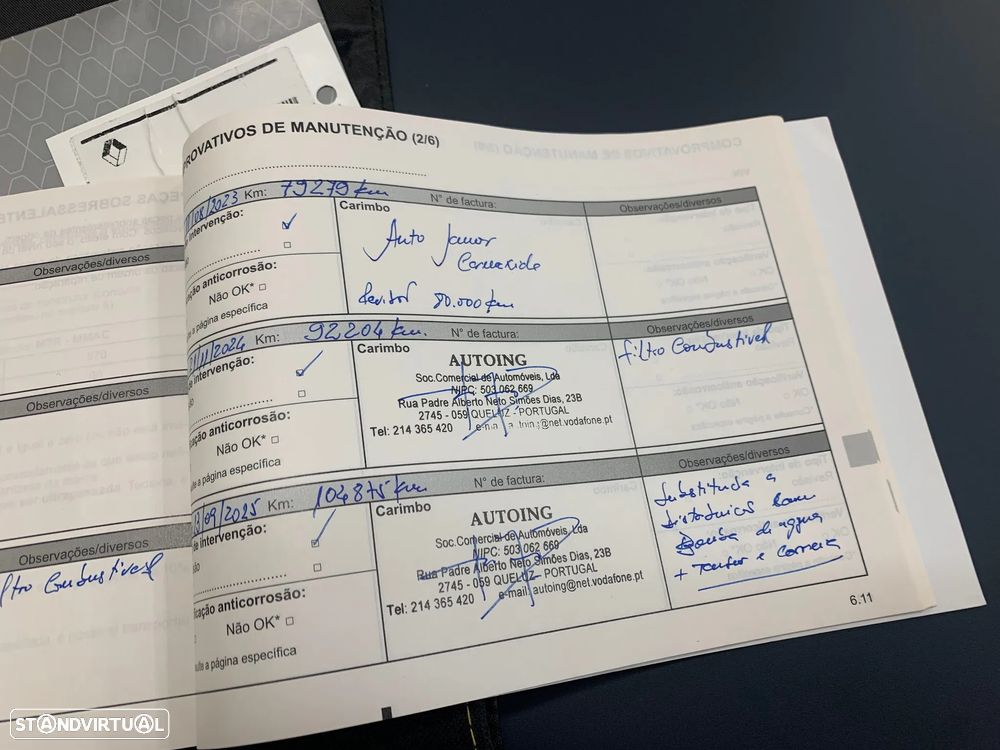 PROVATIVOS DE MANUTENÇÃO (2/6)
/08/2023 Km: 79279 km N° de factura: Observações/diversos
intervenção:
Carimbo
Auto Junior
Carnaxide
Revisão 80.000 km
anticorrosão:
Não OK*
e a página específica
/11/2024 Km: 92204 km. N° de factura: Observações/diversos
e intervenção:
Carimbo
AUTOING
Soc.Comercial de Automóveis, Lda
NIPC: 503 062 669
Rua Padre Alberto Neto Simões Dias, 23B
2745 - 059 QUELUZ - PORTUGAL
Tel: 214 365 420 @net.vodafone.pt
filtro Combustivel
cação anticorrosão:
Não OK*
ulte a página específica
/09/2025 Km: 104875 km N° de factura: Observações/diversos
de intervenção:
são
Carimbo
AUTOING
Soc.Comercial de Automóveis, Lda
NIPC: 503 062 669
Rua Padre Alberto Neto Simões Dias, 23B
2745 - 059 QUELUZ - PORTUGAL
Tel: 214 365 420 e-mail: autoing@net.vodafone.pt
Substituida a
Distribuição com
Bomba di agua
+ Tensor e Correia
icação anticorrosão:
Não OK*
ulte a página específica
6.11
Observações/diversos
Observações/diversos
Observações/diversos
ltro Combustivel
STANDVIRTUAL